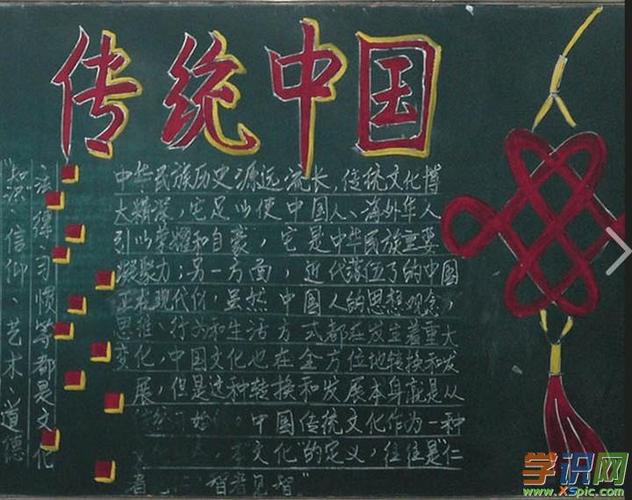 传统中国
知识、信仰、艺术、道德
法律、习惯等都是文化
中华民族历史源远流长，传统文化博
大精深，它足以使中国人、海外华人
引以荣耀和自豪，它是中华民族重要
凝聚力；另一方面，近代落位了的中国
正在现代化，虽然中国人的思想观念，
思维、行为和生活方式都在发生着重大
变化，中国文化也在全方位地转换和发
展，但是这种转换和发展本身就是从
传统开始。中国传统文化作为一种
文化"的定义，往往是"仁
智者见智
学识网
www.xspic.com